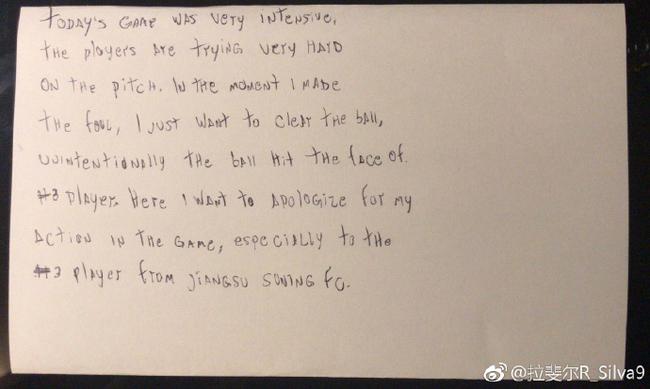 TODAY'S GAME WAS VERY INTENSIVE,
THE players ARE TRYING VERY HARD
ON THE PITCH. IN THE MOMENT I MADE
THE FOUL, I JUST WANT TO CLEAR THE BALL,
UNINTENTIONALLY THE BALL HIT THE FACE OF
#3 PLAYER. HERE I WANT TO APOLOGIZE FOR MY
ACTION IN THE GAME, ESPECIALLY TO THE
#3 PLAYER FROM JIANGSU SUNING FC.
@拉斐尔R_Silva9